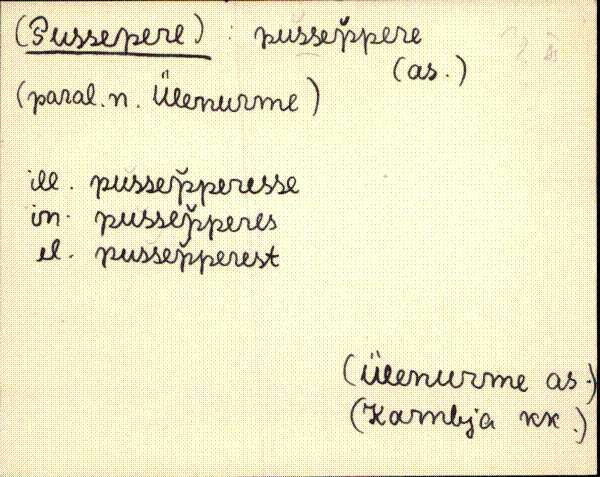 (Pussepere) : pušsep̌pere
(as.)
(paral.n. Ülenurme)
ill. pussep̌peresse
in. pussep̌peres
el. pussep̌perest
(Ülenurme as.)
(Kambja kk.)